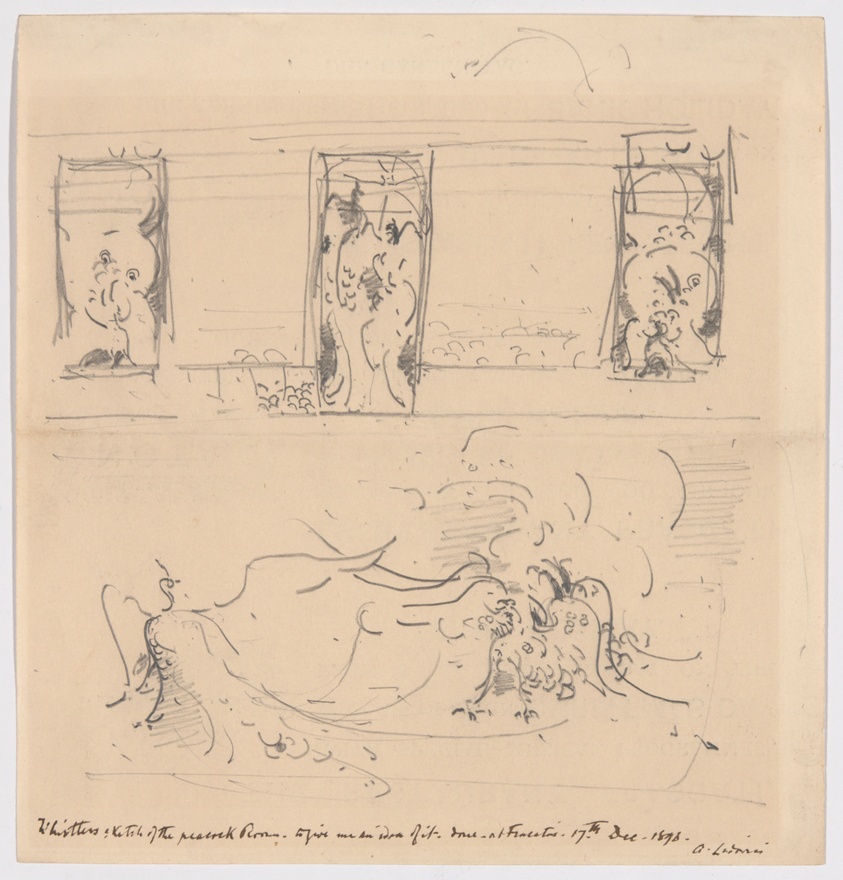 Whistlers sketch of the peacock Room - to give me an idea of it - done - at - 17th Dec - 1898 -
A. Ludovici